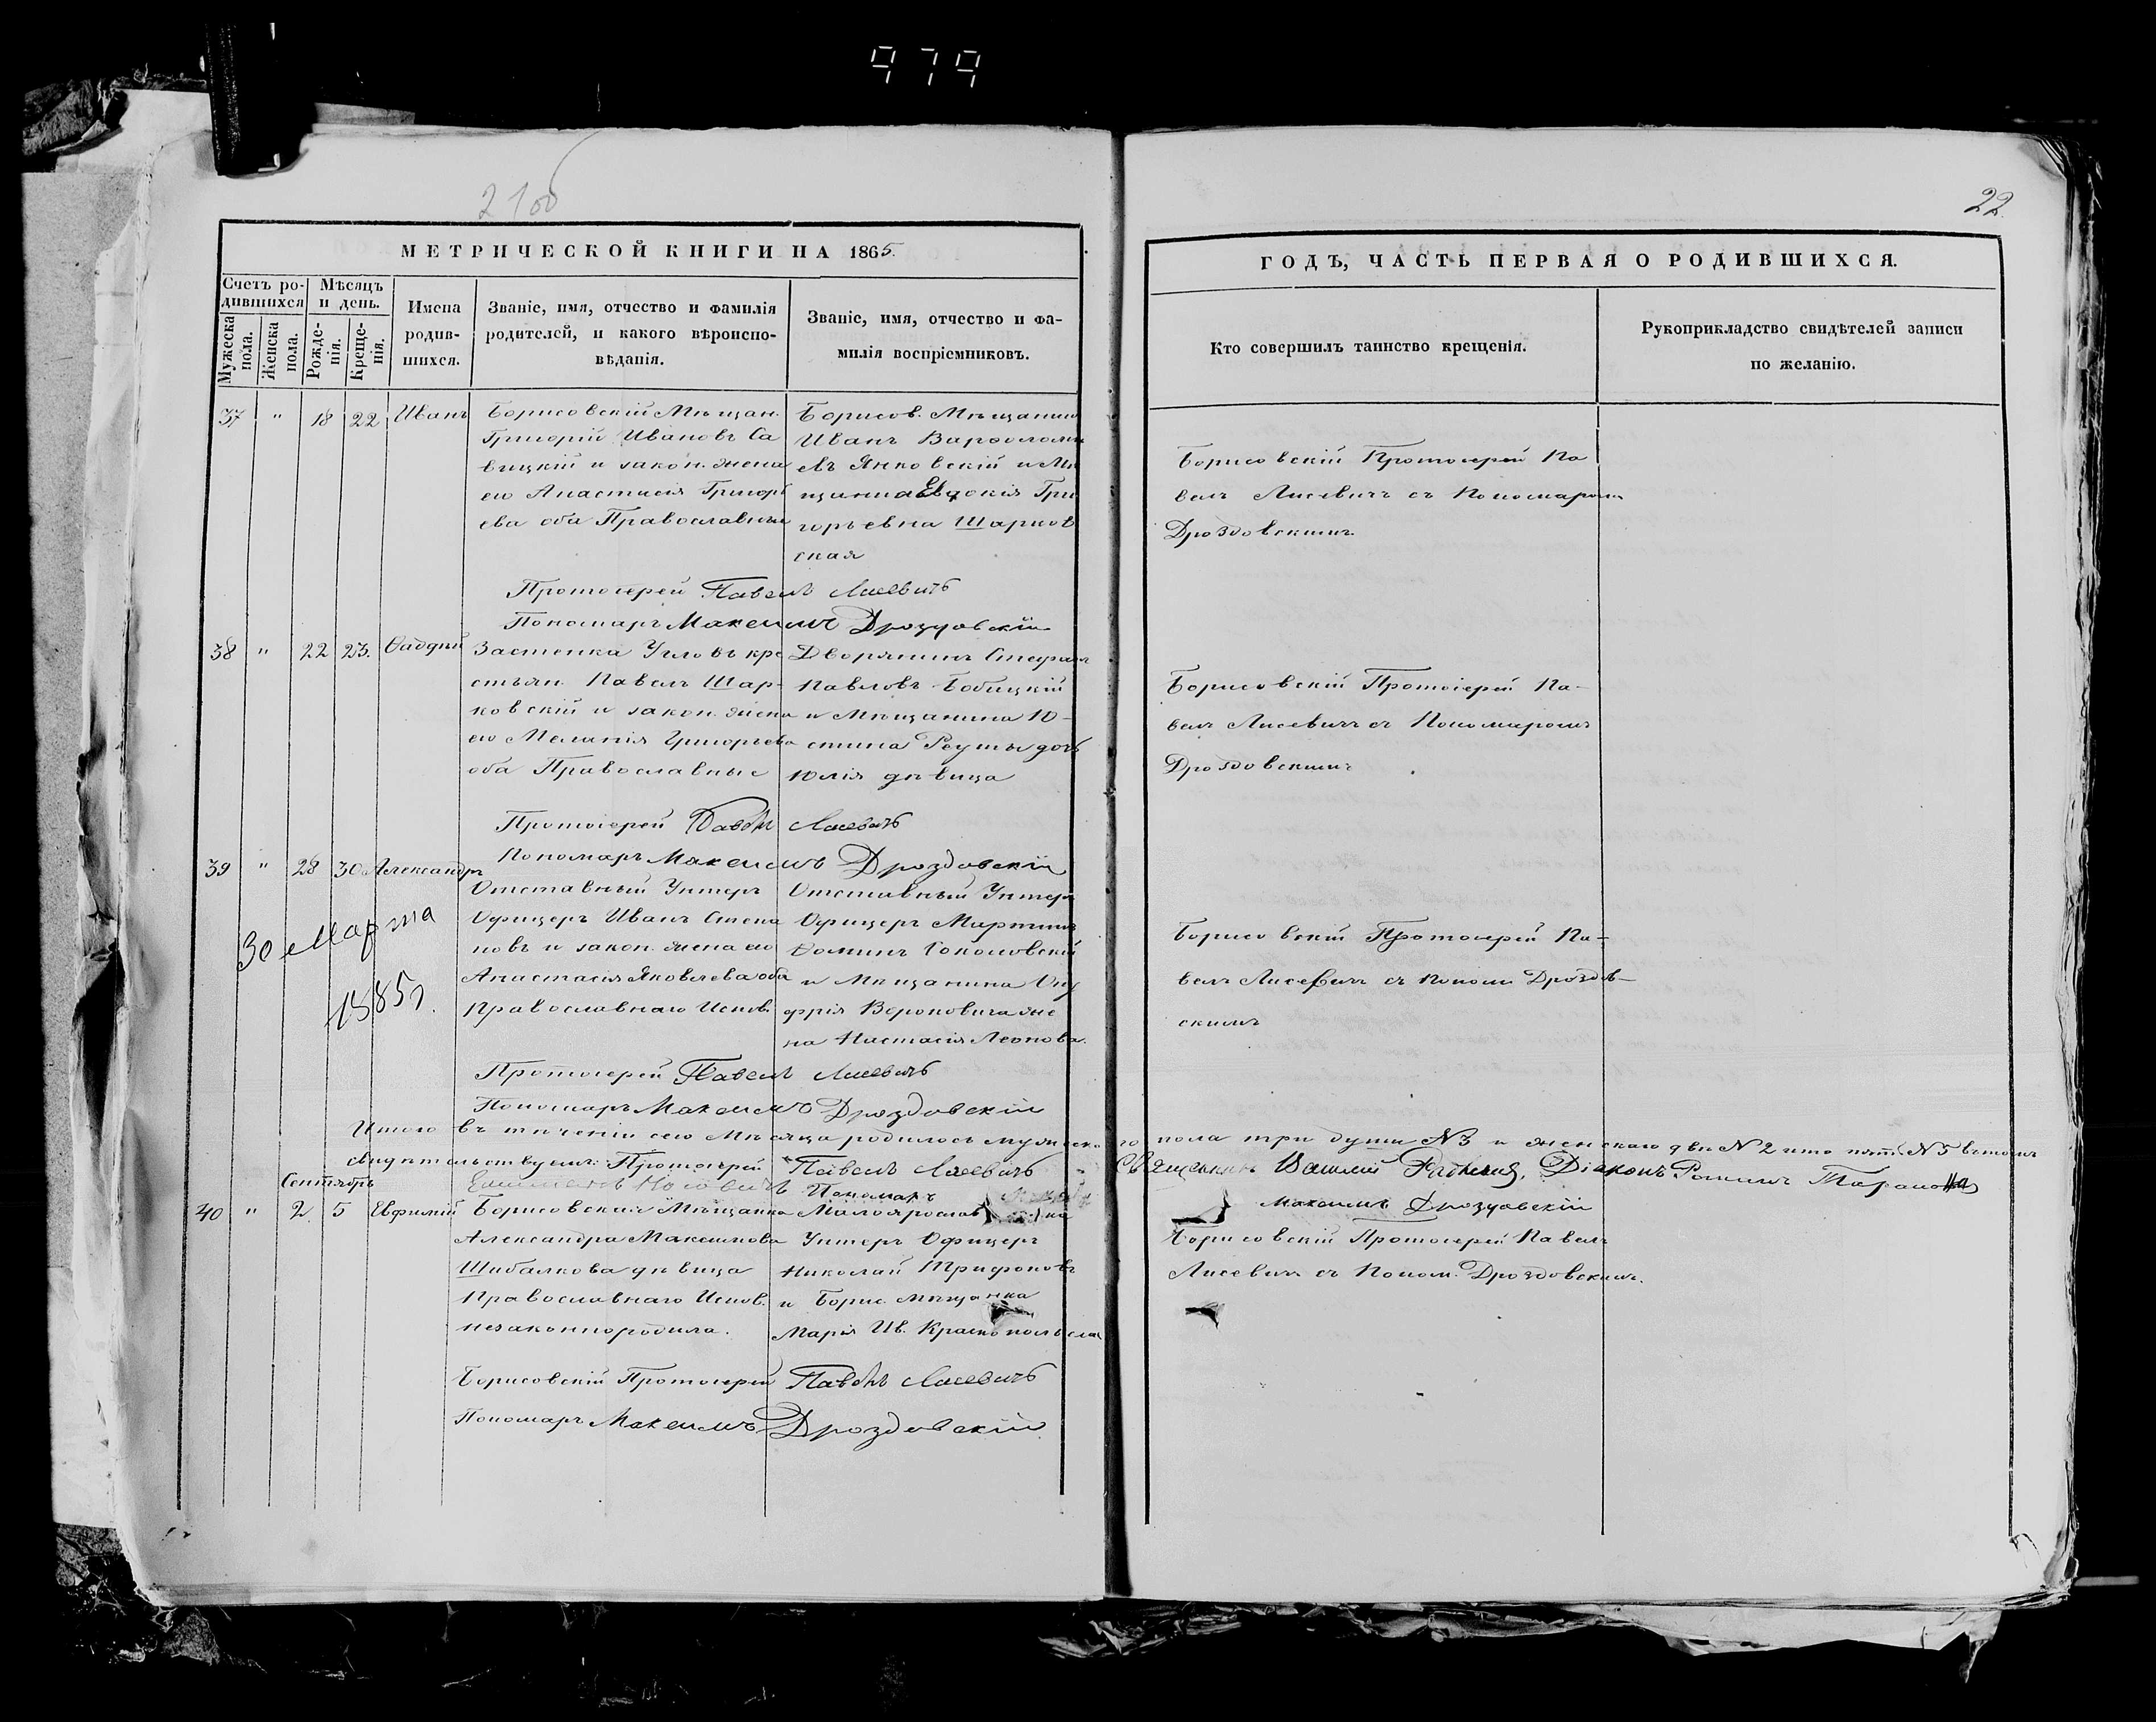 979
2100
22
МЕТРИЧЕСКОЙ КНИГИ НА 1865.
Счетъ ро-
дившихся
Мѣсяцъ
и день.
Мужеска
пола.
Женска
пола.
Рожде-
нія.
Креще-
нія.
Имена
родив-
шихся.
Званіе, имя, отчество и фамилія
родителей, и какого вѣроиспо-
вѣданія.
Званіе, имя, отчество и фа-
милія воспріемниковъ.
ГОДЪ, ЧАСТЬ ПЕРВАЯ О РОДИВШИХСЯ.
Кто совершилъ таинство крещенія.
Рукоприкладство свидѣтелей записи
по желанію.
37 " 18 22 Иванъ
Борисовскій Мѣщан.
Григорій Ивановъ Са
вицкій и закон. жена
его Анастасія Григорь
ева оба Православные
Борисов. Мѣщанинъ
Иванъ Варѳоломе
евъ Янковскій и Мѣ
щанка Евдокія Гри
горьевна Шарков
ская
Борисовскій Протоіерей Па
велъ Лисевичъ съ Пономаремъ
Дроздовскимъ.
Протоіерей Павелъ Лисевичъ
Пономарь Максимъ Дроздовскій
38 " 22 23. Ѳаддей
Застенка Угловъ кре
стьян. Павелъ Шар-
ковскій и закон. жена
его Меланія Григорьева
оба Православные
Дворянинъ Стефанъ
Павловъ Бобицкій
и Мѣщанина Ю-
стина Реуты дочь
Юлія дѣвица
Борисовскій Протоіерей Па-
велъ Лисевичъ съ Пономаромъ
Дроздовскимъ
Протоіерей Павелъ Лисевичъ
Пономарь Максимъ Дроздовскій
39 " 28 30 Александръ
Отставный Унтеръ
Офицеръ Иванъ Степа
новъ и закон. жена его
Анастасія Яковлева оба
Православнаго Испов.
Отставный Унтеръ
Офицеръ Мартинъ
Ѳоминъ Соколовскій
и Мѣщанина Ону
фрія Вороновича же
на Настасія Леонова.
Борисовскій Протоіерей Па-
велъ Лисевичъ съ Поном. Дроздов-
скимъ
30 Марта
1885 г.
Протоіерей Павелъ Лисевичъ
Пономарь Максимъ Дроздовскій
Итого въ теченіи сего Мѣсяца родилось мужескаго пола три души № 3 и женскаго двѣ № 2 итого пять № 5 въ томъ
свидѣтельствуемъ: Протоіерей Павелъ Лисевичъ Священникъ Діаконъ
Пономарь
Максимъ Дроздовскій
Сентябрь
40 " 2 5 Евфимій
Борисовская Мѣщанка
Александра Максимова
Шибалкова дѣвица
Православнаго Испов.
незаконнородила.
Унтеръ Офицеръ
Николай Трифоновъ
и Борис. мѣщанка
Марія Ив.
Борисовскій Протоіерей Павелъ
Лисевичъ съ Поном. Дроздовскимъ.
Борисовскій Протоіерей Павелъ Лисевичъ
Пономарь Максимъ Дроздовскій